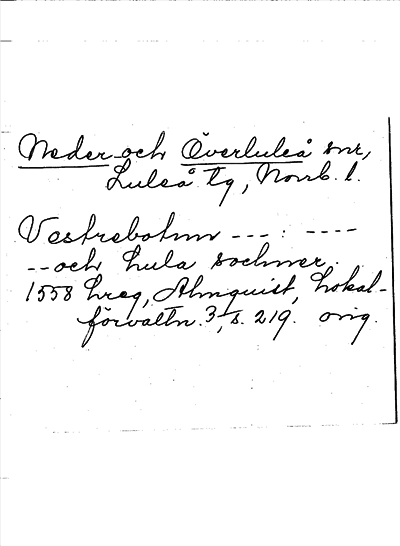 Neder- och Överluleå snr,
Luleå tg, Norrb. l.
Vestrebotnn ---: ----
--och Lula sochner.
1558 Lreg, Almquist, Lokal-
förvaltn. 3, s. 219. orig.